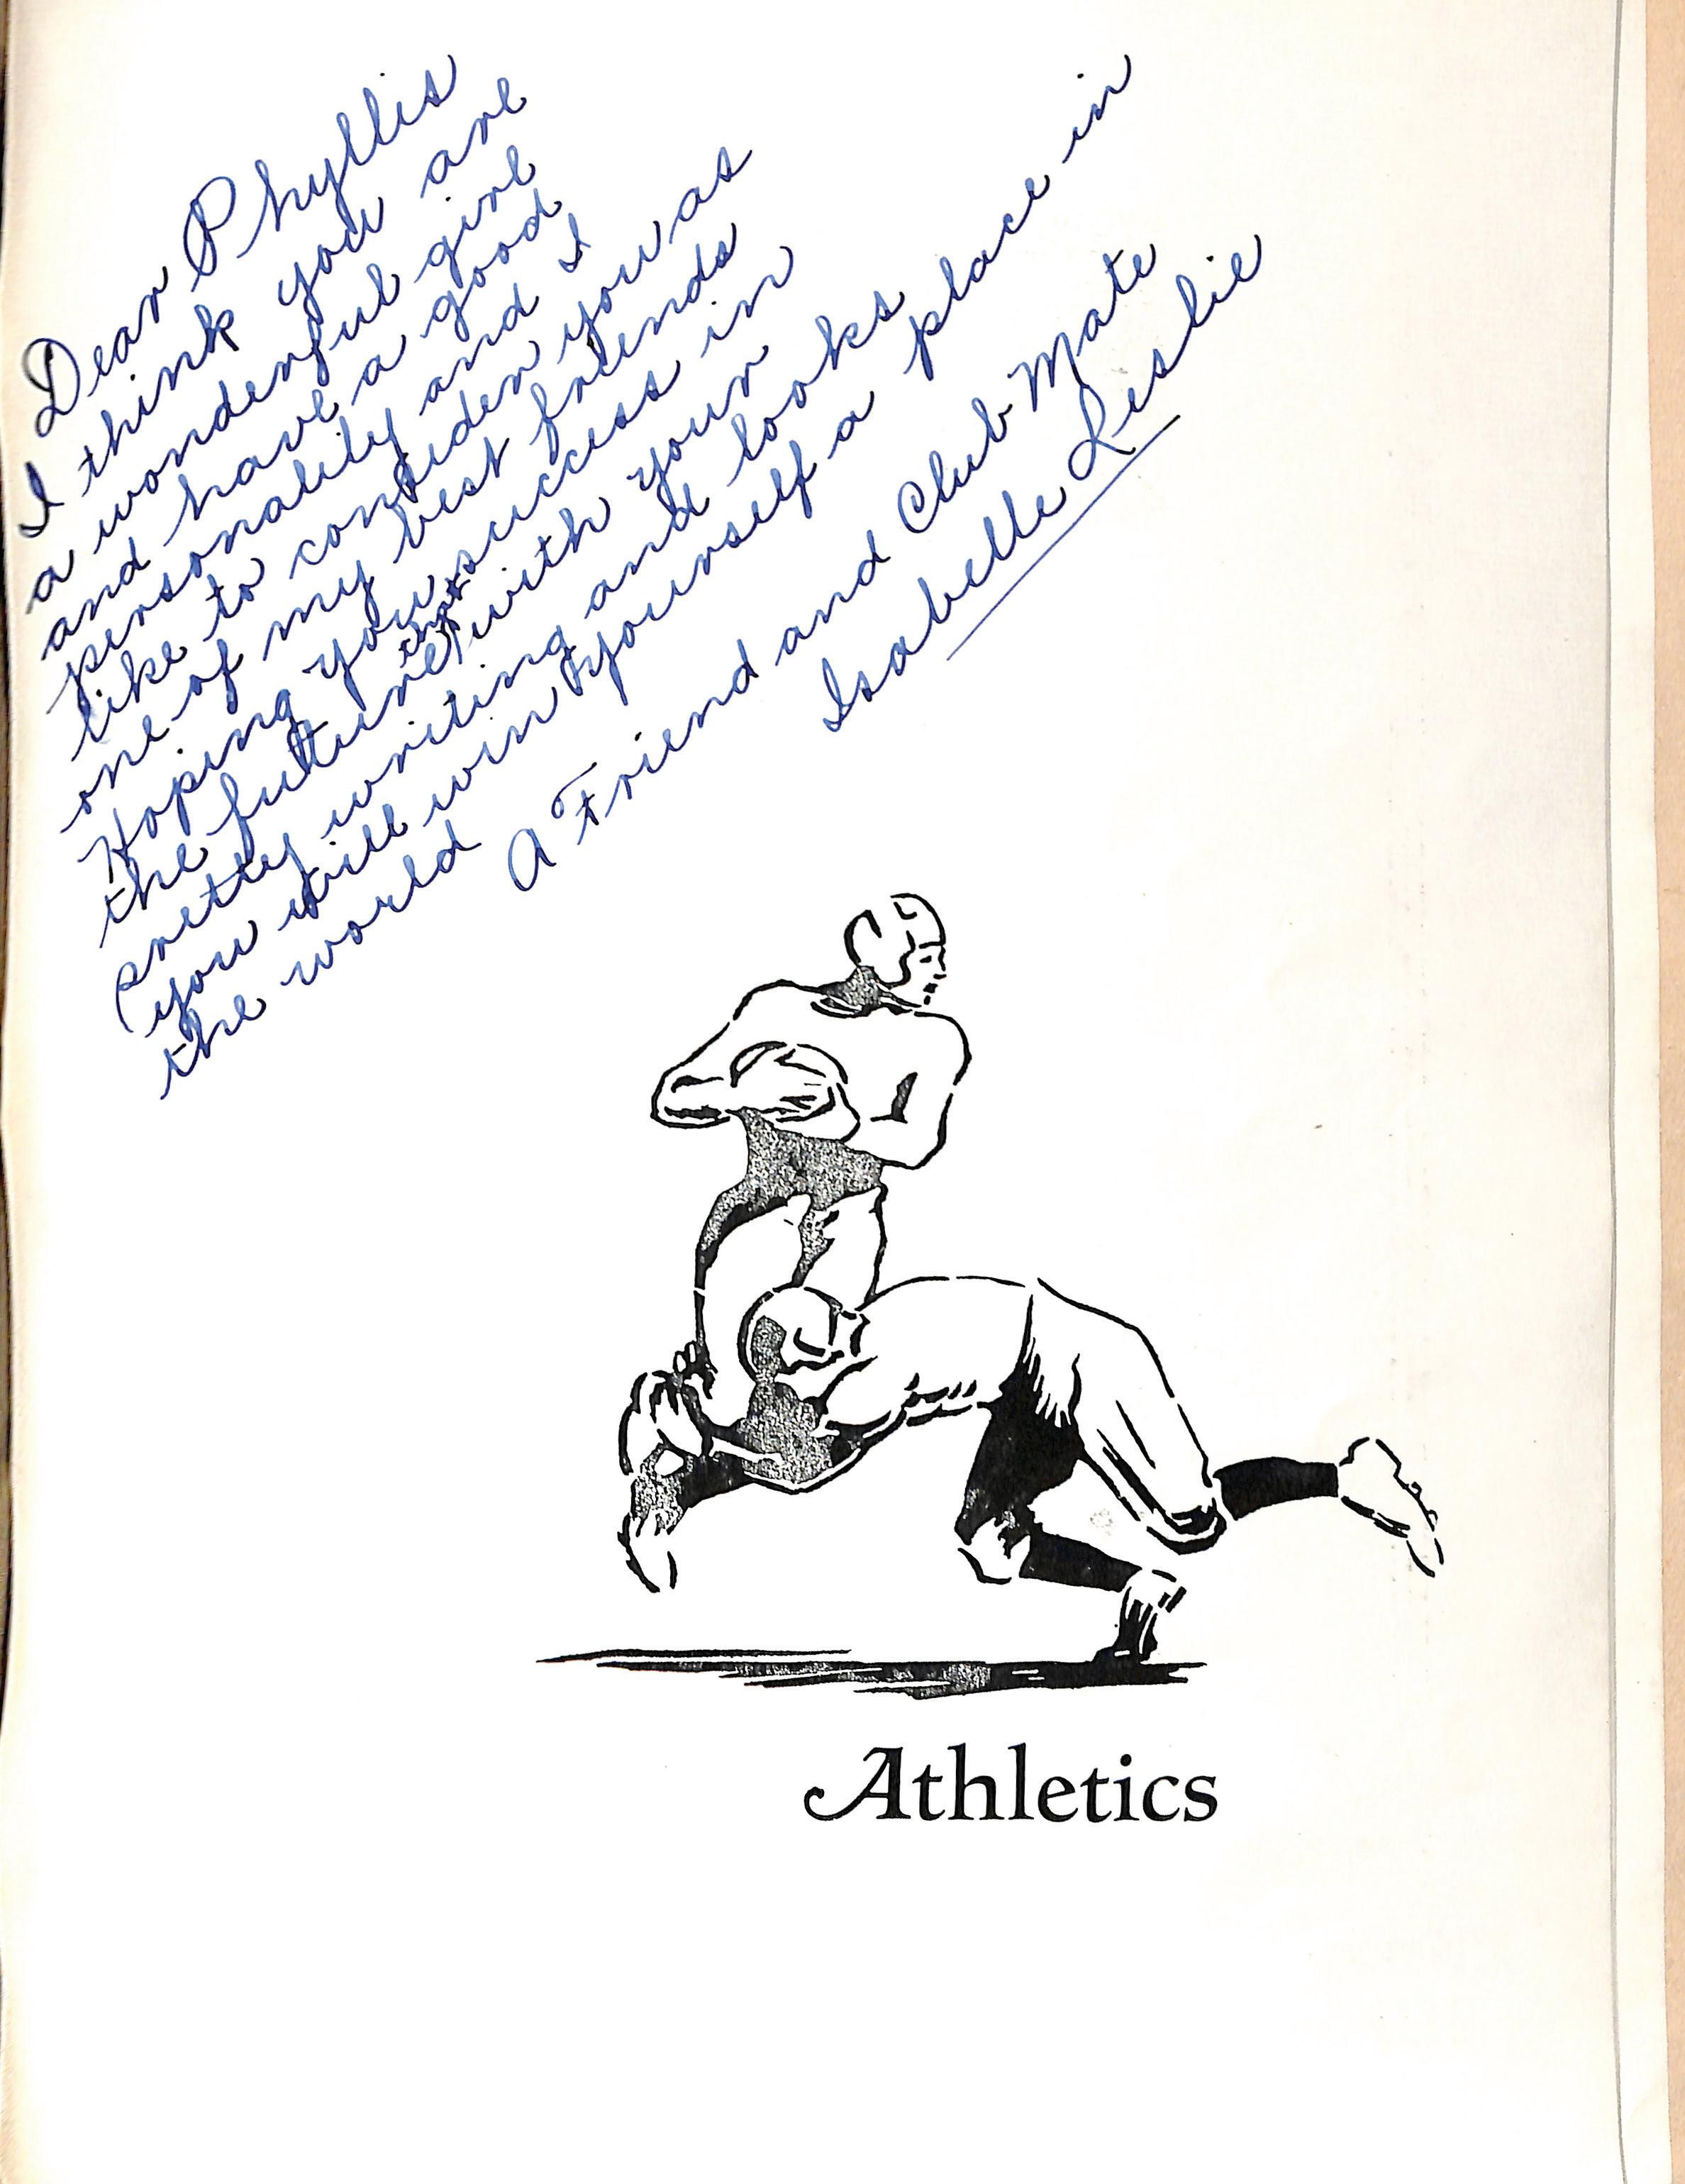 Dear Phyllis
I think you are
a wonderful girl
and have a good
personality and I
like to consider you as
one of my best friends
Hoping you success in
the future, that with your
pretty writing and looks
you will win yourself a place in
the world
A Friend and Club-Mate
Isabelle Leslie
Athletics